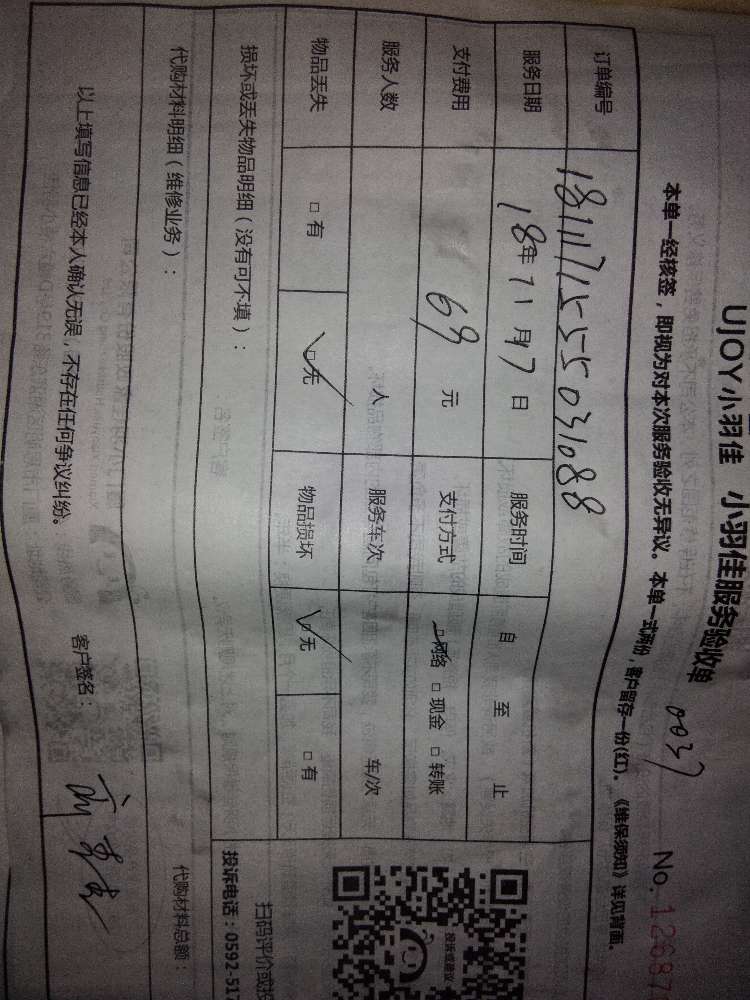 UJOY小羽佳 小羽佳服务验收单 0037
本单一经核签，即视为对本次服务验收无异议。本单一式两份，客户留存一份(红)。《维保须知》详见背面。 No. 12687
订单编号 181117155503108 8
服务日期 18年11月17日 服务时间 自 至 止
支付费用 69 元 支付方式 □网络 □现金 □转账
服务人数 人 服务车次 车/次
物品丢失 □有 □无 物品损坏 □无 □有
损坏或丢失物品明细（没有可不填）：
代购材料明细（维修业务）： 代购材料总额：
以上填写信息已经本人确认无误，不存在任何争议纠纷。 客户签名：
投诉或建议
扫码评价或投
投诉电话：0592-517